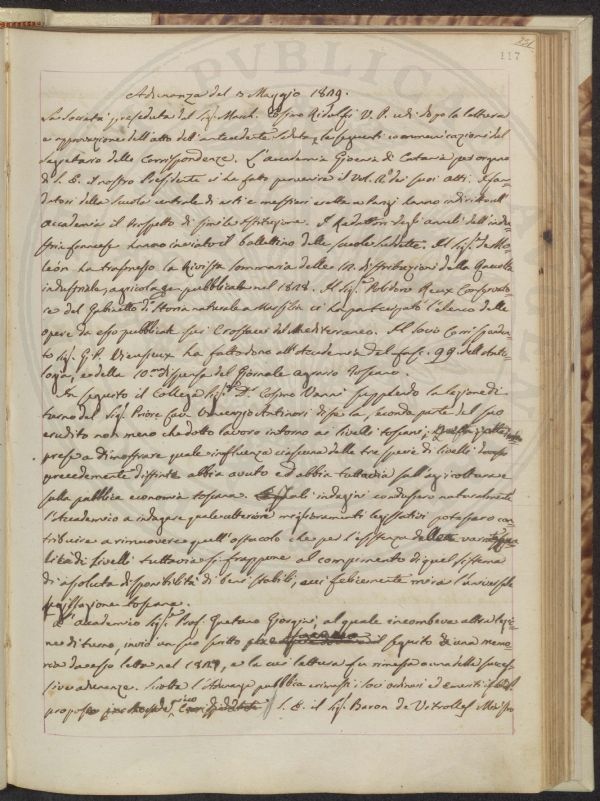 231
117
Adunanza del 3 Maggio 1829.
La Società presieduta dal Sig. March. Cosimo Ridolfi V. P. udì dopo la lettura
e approvazione dell'atto dell'antecedente seduta, le seguenti comunicazioni del
Segretario delle Corrispondenze. L'accademia Gioenia di Catania per organo
di S. E. il nostro Presidente ci ha fatto pervenire il Vol. 2.º dei suoi Atti. I fon-
datori della Scuola centrale di arti e mestieri eretta a Parigi hanno indirizzato all'
Accademia il Prospetto di simile istituzione. I Redattori degli annali dell'indu-
stria francese hanno inviato il bollettino delle Scuole suddette. Il Sig. de Mo-
léon ha trasmesso la Rivista sommaria delle 12 distribuzioni della Raccolta
industriale, agricola ec. pubblicate nel 1828. Il Sig. Polidoro Roux Conservato-
re del Gabinetto di Storia naturale a Marsilia ci ha partecipato l'elenco delle
opere da esso pubblicate sui Crostacei del Mediterraneo. Il Socio Corrisponden-
te Sig. G. P. Vieusseux ha fatto dono all'Accademia del fasc. 99. dell'Anto-
logia, e della 10.ma dispensa del Giornale agrario Toscano.
In seguito il Collega Sig. D. Cosimo Vanni supplendo la lezione di
turno del Sig. Priore Cav. Vincenzio Antinori disse la seconda parte del suo
erudito non meno che dotto lavoro intorno ai livelli toscani;
prese a dimostrare quale influenza ciascuna delle tre specie di livelli da esso
precedentemente distinte abbia avuto ed abbia tuttavia sull'agricoltura e
sulla pubblica economia toscana. tali indagini condussero naturalmente
l'Accademico a indagare quale ulteriore miglioramenti legislativi potessero con-
tribuire a rimuovere quell'ostacolo che per l'esistenza delle varie qua-
lità di Livelli tuttavia si frappone al compimento di quel sistema
di assoluta disponibilità di beni stabili, cui felicemente mira l'universale
legislazione toscana.
L'accademico Sig. Prof. Gaetano Giorgini, al quale incombeva altra lezio-
ne di turno, inviò un suo scritto il seguito di una memo-
ria da esso letta nel 1827, e la cui lettura fu rimessa a una delle succes-
sive adunanze. Sciolta l'Adunanza pubblica e rimasti i Soci ordinari ed emeriti
proposto S. E. il Sig. Baron de Vitrolles Ministro